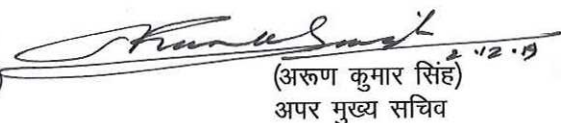 2.12.19
(अरूण कुमार सिंह)
अपर मुख्य सचिव